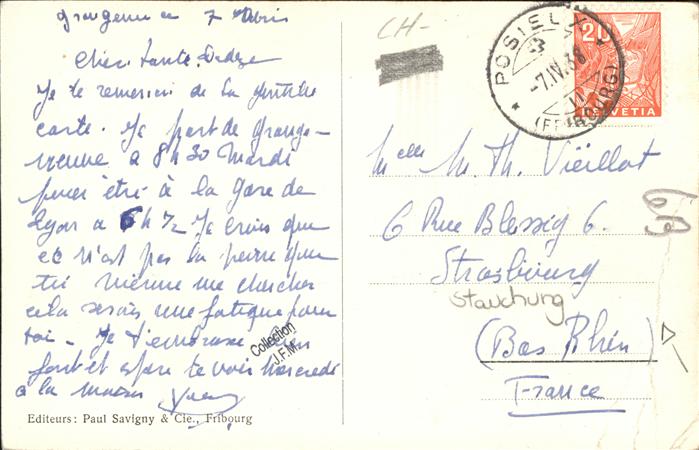 7 Avril
Chère tante
Je te remercie de la gentille
carte. Je part de Grange-
neuve a 8h30 Mardi
pour être à la Gare de
Lyon a 6h 1/2 Je crois que
ce n'est pas la peine que
tu vienne me chercher
cela serais une fatigue pour
toi - Je t'embrasse bien
fort et espère te voir Mercredi
à la maison Yvan
Editeurs: Paul Savigny & Cie., Fribourg
Collection
J.F.M.
CH-
POSIEUX
-7.IV.38
(FRIBOURG)
20
HELVETIA
Melle M. Th. Viéillot
6 Rue Blessig 6.
Strasbourg
Stauchung
(Bas Rhin)
France